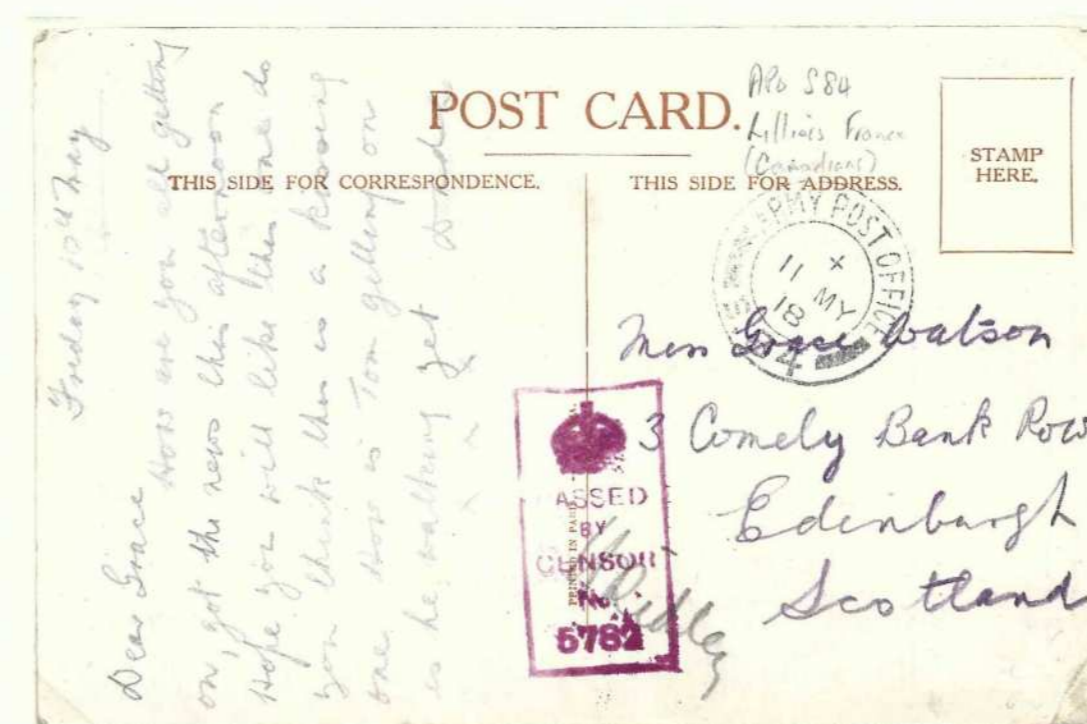 POST CARD.
THIS SIDE FOR CORRESPONDENCE.
THIS SIDE FOR ADDRESS.
STAMP
HERE.
APO S84
Lilliers France
(Canadians)
ARMY POST OFFICE
11 MY
18
X
S4
Friday 10th May
Dear Grace
How are you all getting
on, got the news this afternoon
Hope you will like this one do
you think this is a knowing
one How is Tom getting on
is he walking yet
x x x x
Miss Grace Watson
3 Comely Bank Row
Edinburgh
Scotland
PASSED
BY
CENSOR
No.
5782
PRINTED IN PARIS